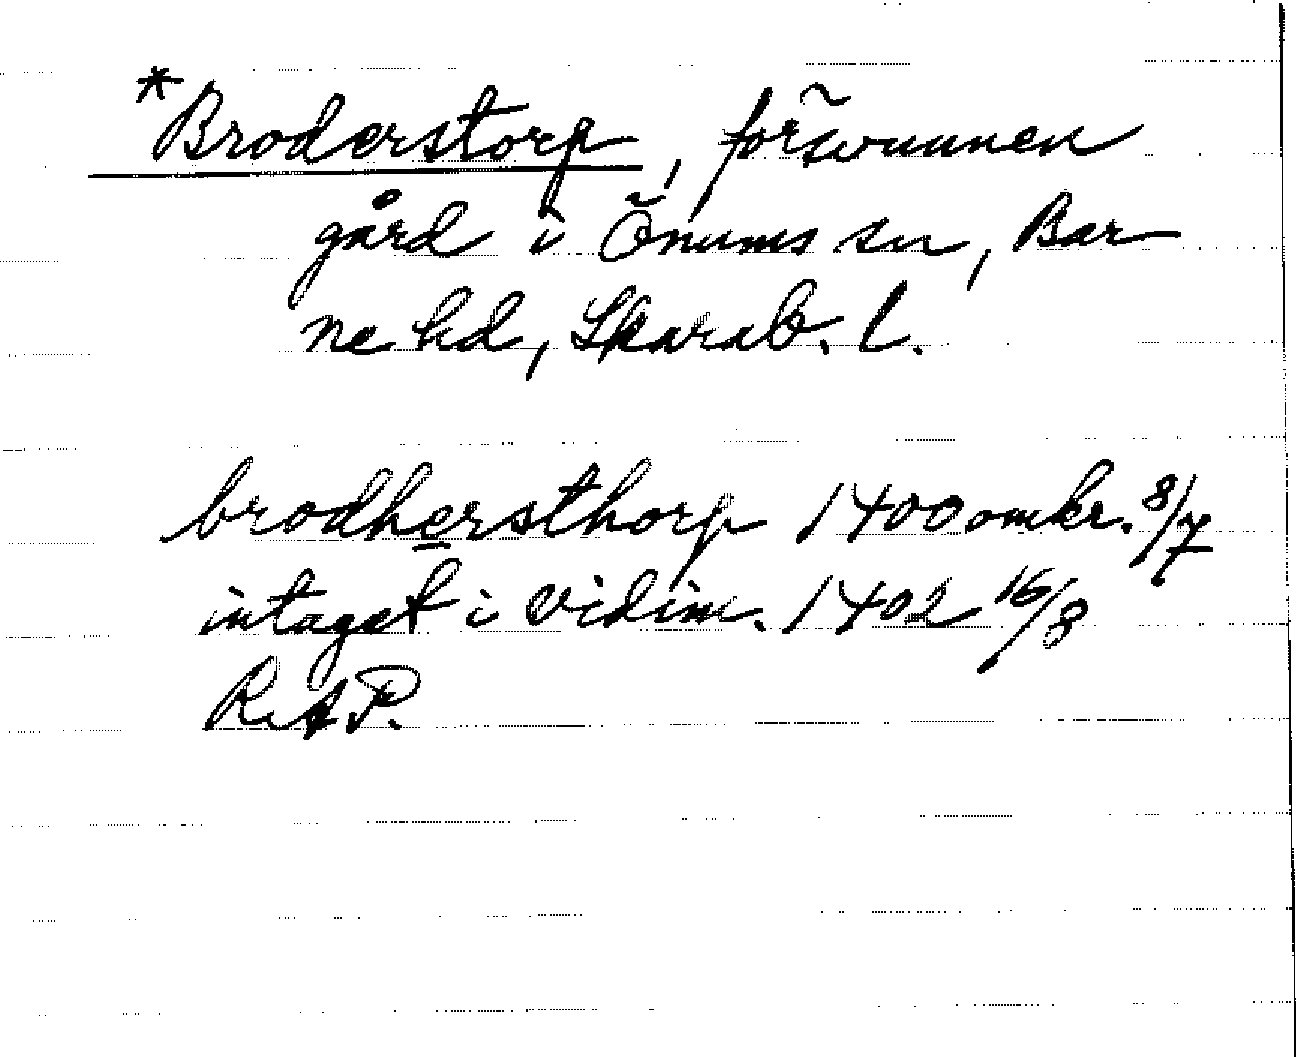 *Broderstorp, försvunnen
gård i Önums sn, Bar
ne hd, Skarab. l.
brodhersthorp 1400 omkr. 8/7
intaget i vidim. 1402 16/8
RAP.